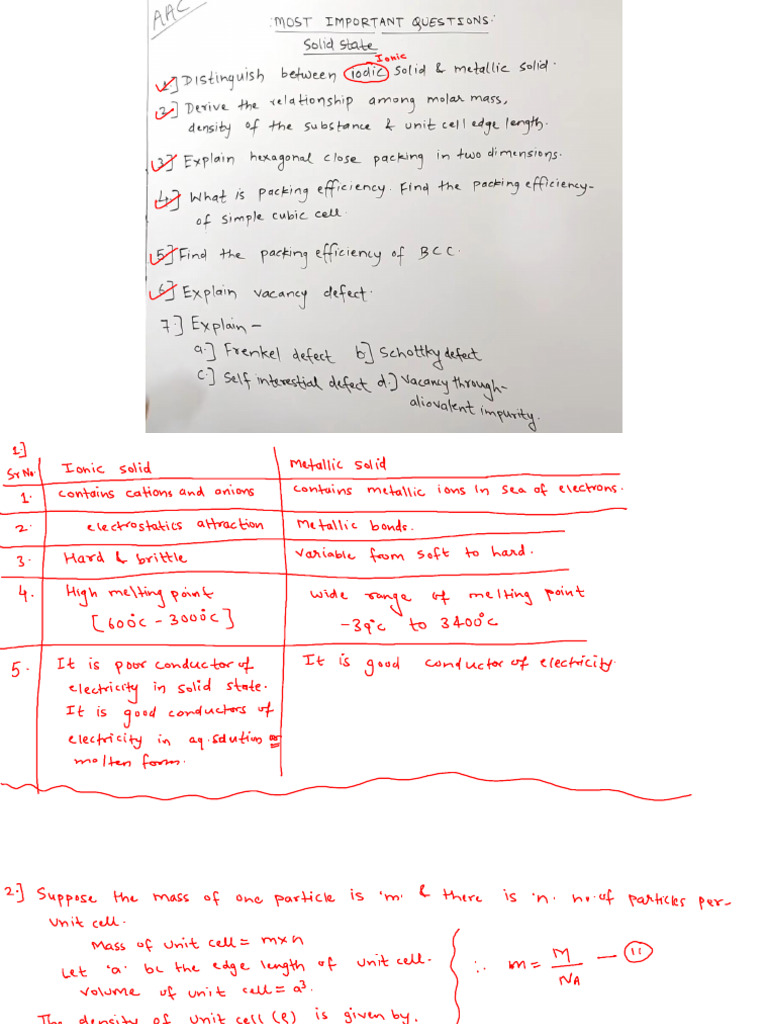 AAC
:MOST IMPORTANT QUESTIONS:
Solid State
Ionic
1.] Distinguish between iodic solid & metallic solid.
2.] Derive the relationship among molar mass,
density of the substance & unit cell edge length.
3.] Explain hexagonal close packing in two dimensions.
4.] What is packing efficiency. Find the packing efficiency-
of simple cubic cell.
5.] Find the packing efficiency of BCC.
6.] Explain vacancy defect.
7.] Explain –
a.] Frenkel defect b.] Schottky defect
c.] Self interestial defect d.] Vacancy through-
aliovalent impurity.
1.]
Sr No. Ionic solid Metallic solid
1. contains cations and anions contains metallic ions in sea of electrons.
2. electrostatics attraction Metallic bonds.
3. Hard & brittle variable from soft to hard.
4. High melting point wide range of melting point
[600°C - 3000°C] -39°C to 3400°C
5. It is poor conductor of It is good conductor of electricity.
electricity in solid state.
It is good conductors of
electricity in aq. solution or
molten form.
2.] Suppose the mass of one particle is 'm' & there is 'n' no. of particles per-
unit cell.
Mass of unit cell = m×n
Let 'a' be the edge length of unit cell.
volume of unit cell = a³.
The density of unit cell (ρ) is given by,
∴ m = M/NA — (II)